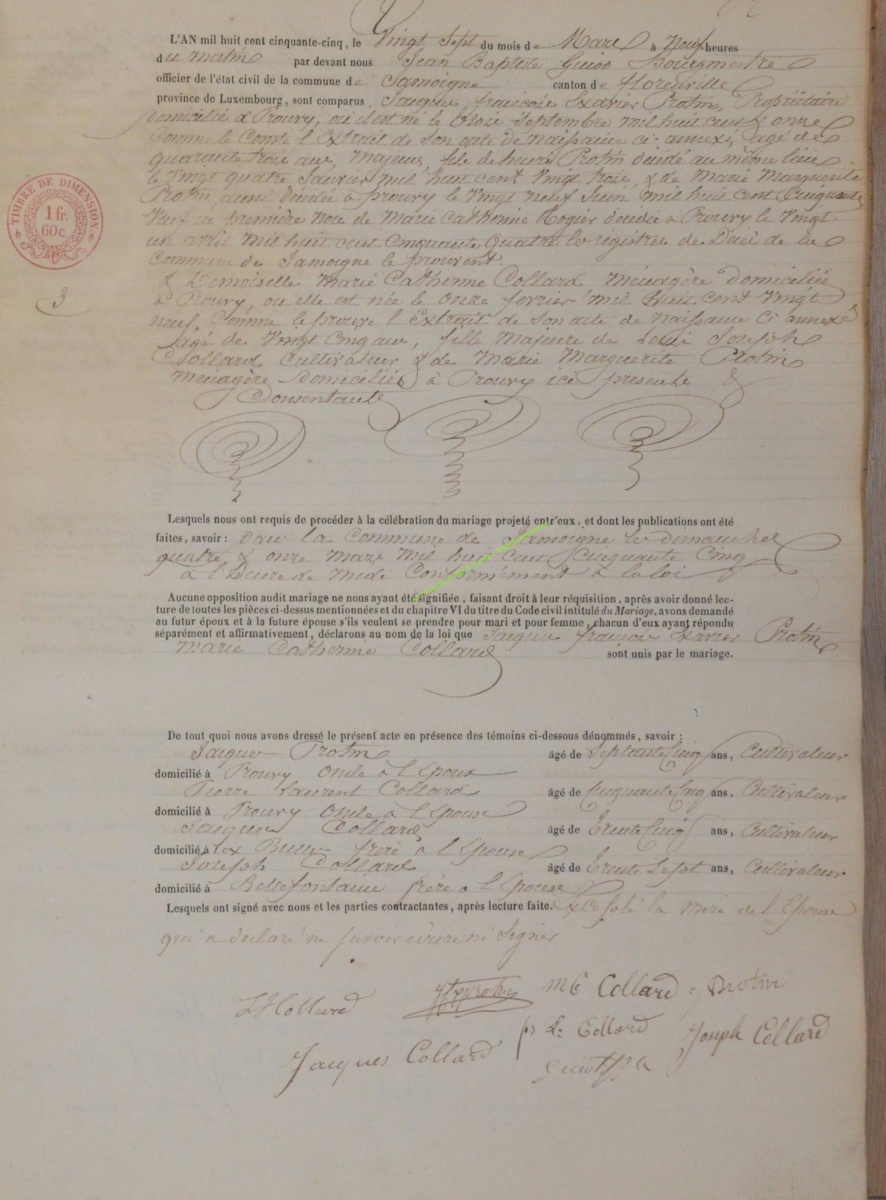 L'AN mil huit cent cinquante-cinq, le Vingt Sept du mois de Mars à Neuf heures
du matin par devant nous Jean Baptiste Guiot Bourgmestre
officier de l'état civil de la commune de Jamoigne canton de florenville
province de Luxembourg, sont comparus Jacques françois Xavier Protin, Propriétaire
domicilié à Prouvy, où il est né le Septembre mil huit cent onze
Comme le Conste l'Extrait de Son acte de Naissance ci annexé, agé de
quarante trois ans, Majeur, fils de Protin décédé au même lieu
le Vingt quatre Janvier mil huit cent Vingt trois, & de Marie Marguerite
Protin aussi décédée à prouvy le Vingt neuf Juin mil huit cent Cinquante
Veuf en première Noce de Marie Catherine Rogier décédée à Prouvy le Vingt
un avril Mil huit cent Cinquante quatre les registres de Décès de la
Commune de Jamoigne le prouvent.
& Demoiselle Marie Catherine Collard Ménagère domiciliée
à Prouvy, ou elle est née le Onze fevrier mil huit cent Vingt
neuf, Comme le prouve l'Extrait de Son acte de Naissance Ci annexé
agé de Vingt Cinq ans, fille Majeure de Joseph
Collard Cultivateur & de Marie Marguerite Protin
Ménagère Domiciliés à Prouvy ici présente &
Consentante
TIMBRE DE DIMENSION
1 fr.
60 c.
3
Lesquels nous ont requis de procéder à la célébration du mariage projeté entr'eux, et dont les publications ont été
faites, savoir : dans la Commune de Jamoigne les Dimanches
quatre & onze Mars Mil huit Cent Cinquante Cinq
à l'heure de Midi Conformement à la loi
Aucune opposition audit mariage ne nous ayant été signifiée, faisant droit à leur réquisition, après avoir donné lec-
ture de toutes les pièces ci-dessus mentionnées et du chapitre VI du titre du Code civil intitulé du Mariage, avons demandé
au futur époux et à la future épouse s'ils veulent se prendre pour mari et pour femme, chacun d'eux ayant répondu
séparément et affirmativement, déclarons au nom de la loi que Jacques françois Xavier Protin
Marie Catherine Collard sont unis par le mariage.
De tout quoi nous avons dressé le présent acte en présence des témoins ci-dessous dénommés, savoir :
Jacques Protin âgé de Septante Cinq ans, Cultivateur
domicilié à Prouvy Oncle à l'Epoux
Pierre Laurent Collard âgé de Cinquante Cinq ans, Cultivateur
domicilié à Prouvy Oncle à l'Epouse
Jacques Collard âgé de Trente Cinq ans, Cultivateur
domicilié à frère à l'Epouse
Joseph Collard âgé de Trente Sept ans, Cultivateur
domicilié à Bellefontaine frère à l'Epouse
Lesquels ont signé avec nous et les parties contractantes, après lecture faite. la Mère de l'Epouse
qui a déclaré ne Savoir écrire ni Signer
Collard Protin MC Collard Protin
L. Collard Joseph Collard
Jacques Collard Guiot